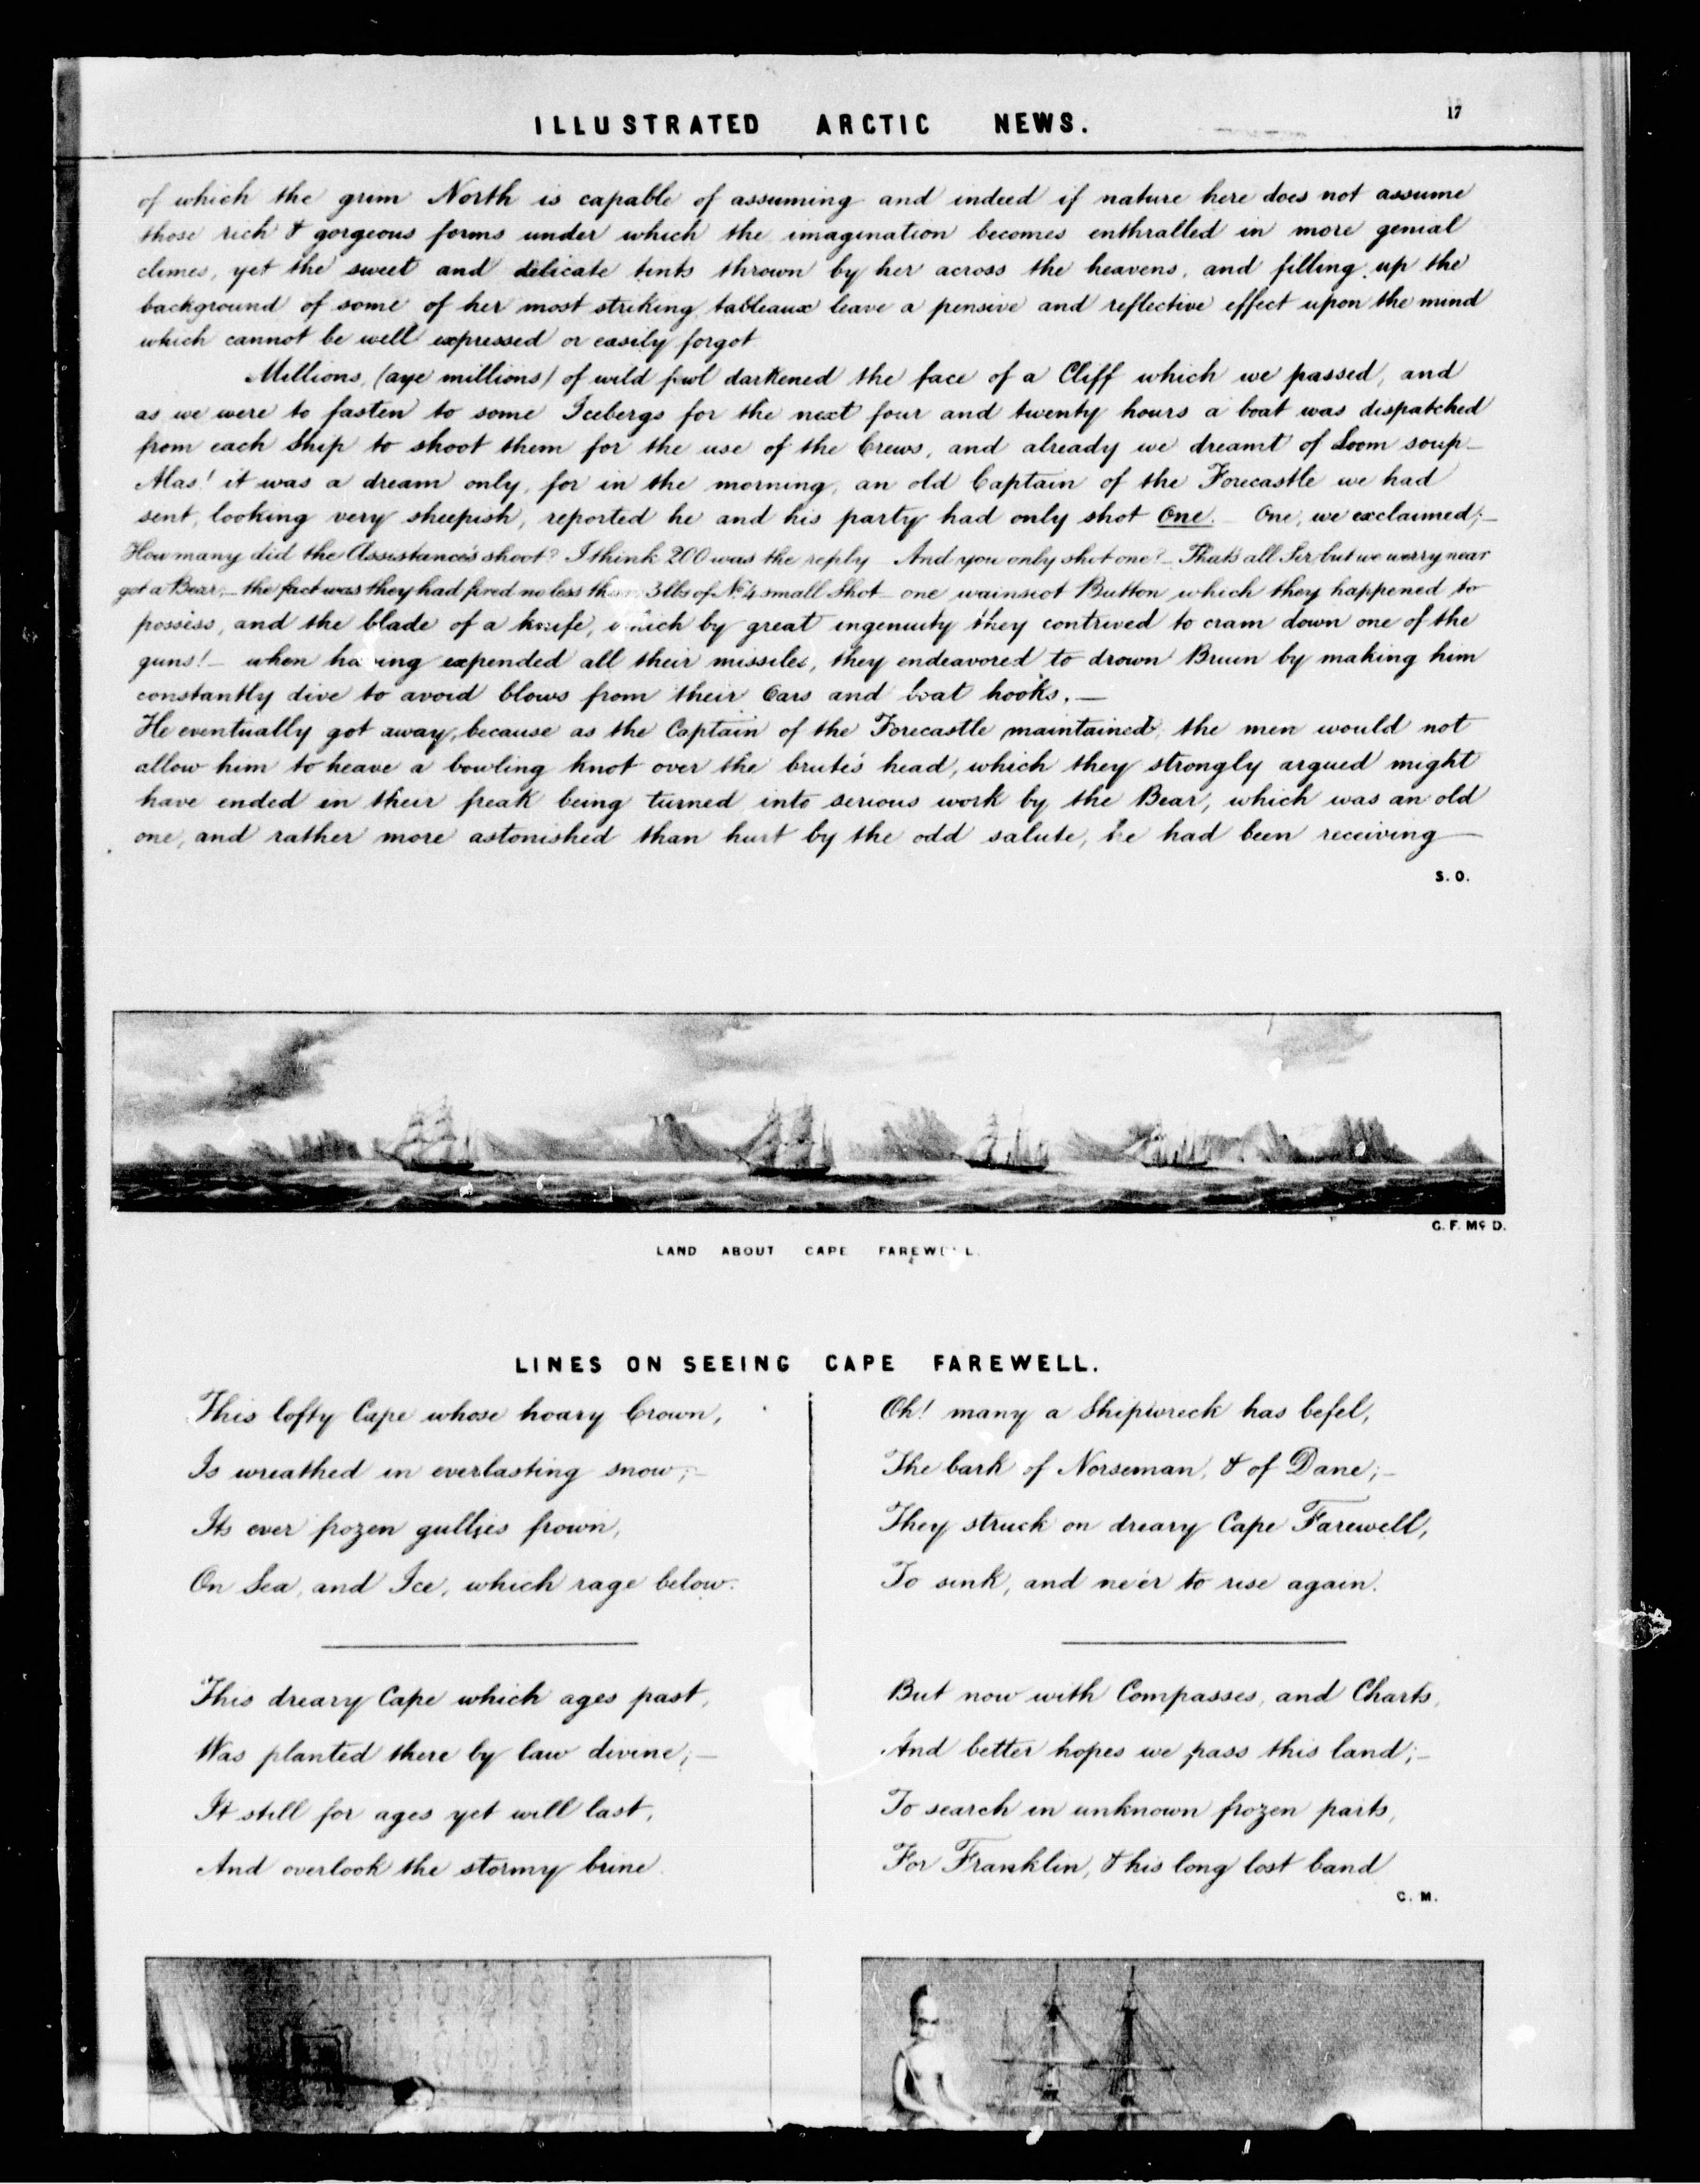 ILLUSTRATED ARCTIC NEWS.
17
of which the grim North is capable of assuming and indeed if nature here does not assume
those rich & gorgeous forms under which the imagination becomes enthralled in more genial
climes, yet the sweet and delicate tints thrown by her across the heavens, and filling up the
background of some of her most striking tableaux leave a pensive and reflective effect upon the mind
which cannot be well expressed or easily forgot
Millions, (aye millions) of wild fowl darkened the face of a Cliff which we passed, and
as we were to fasten to some Icebergs for the next four and twenty hours a boat was dispatched
from each Ship to shoot them for the use of the Crews, and already we dreamt of Loom soup—
Alas! it was a dream only, for in the morning, an old Captain of the Forecastle we had
sent, looking very sheepish, reported he and his party had only shot One. — One, we exclaimed;—
How many did the Assistance's shoot? I think 200 was the reply And you only shot one?— That's all Sir but we werry near
got a Bear;— the fact was they had fired no less than 3lbs of No 4 small Shot— one wainscot Button which they happened to
possess, and the blade of a knife, which by great ingenuity they contrived to cram down one of the
guns!— when having expended all their missiles, they endeavored to drown Bruin by making him
constantly dive to avoid blows from their Oars and boat hooks.—
He eventually got away, because as the Captain of the Forecastle maintained, the men would not
allow him to heave a bowling knot over the brute's head, which they strongly argued might
have ended in their freak being turned into serious work by the Bear, which was an old
one, and rather more astonished than hurt by the odd salute, he had been receiving—
S. O.
G. F. Mc D.
LAND ABOUT CAPE FAREWELL.
LINES ON SEEING CAPE FAREWELL.
This lofty Cape whose hoary Crown,
Is wreathed in everlasting snow;—
Its ever frozen gullies frown,
On Sea, and Ice, which rage below.
This dreary Cape which ages past,
Was planted there by law divine;—
It still for ages yet will last,
And overlook the stormy brine.
Oh! many a Shipwreck has befel,
The bark of Norseman, & of Dane;—
They struck on dreary Cape Farewell,
To sink, and ne'er to rise again.
But now with Compasses, and Charts,
And better hopes we pass this land;—
To search in unknown frozen parts,
For Franklin, & his long lost band
C. M.